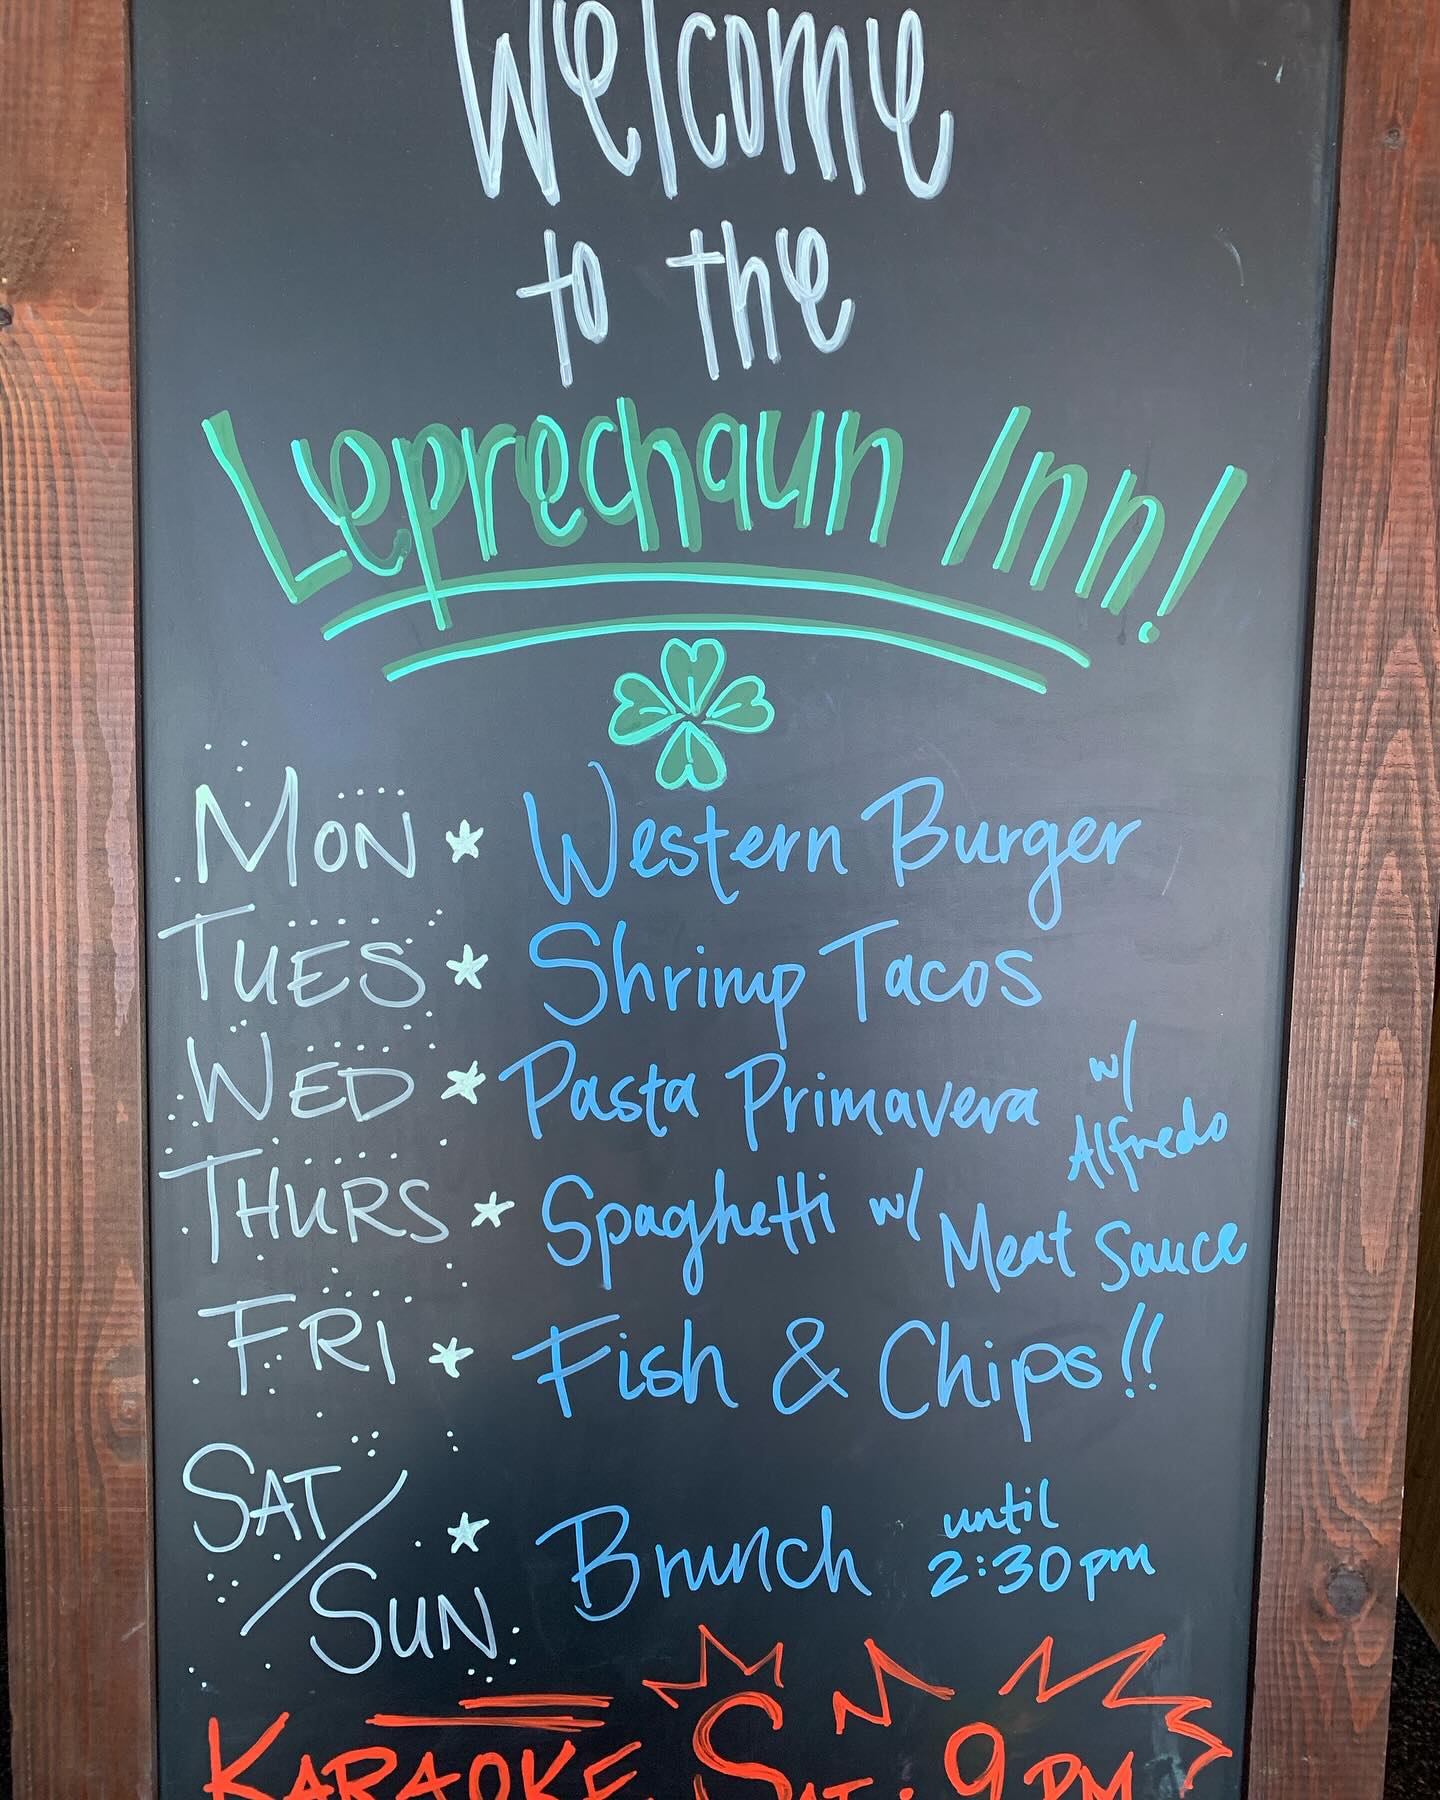 Welcome
to the
Leprechaun Inn!
MON ★ Western Burger
TUES ★ Shrimp Tacos
WED ★ Pasta Primavera w/ Alfredo
THURS ★ Spaghetti w/ Meat Sauce
FRI ★ Fish & Chips!!
SAT/SUN ★ Brunch until 2:30pm
KARAOKE SAT. 9PM